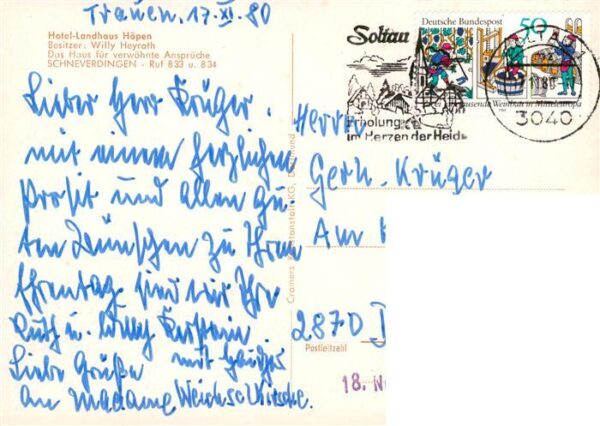 Trauen. 17. XI. 80
Hotel-Landhaus Höpen
Besitzer: Willy Heyrath
Das Haus für verwöhnte Ansprüche
SCHNEVERDINGEN - Ruf 833 u. 834
Lieber Herr Krüger.
mit einem herzlichen
Prosit und allen gu-
ten Wünschen zu Ihrem
Ehrentag sind wir Ihre
Ruth u. Willy
Liebe Grüße mit
an Madame
Cramers Kunstanstalt KG, Dortmund
Soltau
Erholung
im Herzen der Heide
Deutsche Bundespost 50
Zwei Jahrtausende Weinbau in Mitteleuropa
SOLTAU
80
3040
Herrn
Gerh. Krüger
Am
2870 D
Postleitzahl
18. N